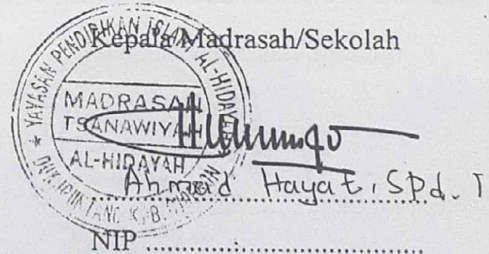 Kepala Madrasah/Sekolah
YAYASAN PENDIDIKAN ISLAM AL-HIDAYAH
MADRASAH
TSANAWIYAH
AL-HIDAYAH
Ahmad Hayat, SPd. I
NIP ..............................